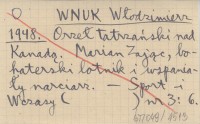 WNUK Włodzimierz
1948. Orzeł tatrzański nad
Kanadą. Marian Zając, bo-
haterski lotnik i wspania-
ły narciarz. — Sport i
Wczasy ( ) nr 3: 6.